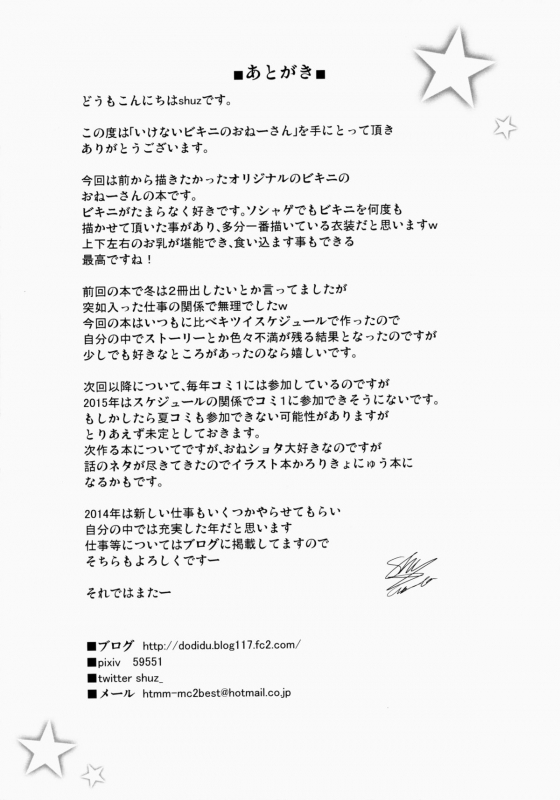 ■あとがき■
どうもこんにちはshuzです。
この度は「いけないビキニのおねーさん」を手にとって頂き
ありがとうございます。
今回は前から描きたかったオリジナルのビキニの
おねーさんの本です。
ビキニがたまらなく好きです。ソシャゲでもビキニを何度も
描かせて頂いた事があり、多分一番描いている衣装だと思いますw
上下左右のお乳が堪能でき、食い込ます事もできる
最高ですね！
前回の本で冬は2冊出したいとか言ってましたが
突如入った仕事の関係で無理でしたw
今回の本はいつもに比べキツイスケジュールで作ったので
自分の中でストーリーとか色々不満が残る結果となったのですが
少しでも好きなところがあったのなら嬉しいです。
次回以降について、毎年コミ1には参加しているのですが
2015年はスケジュールの関係でコミ1に参加できそうにないです。
もしかしたら夏コミも参加できない可能性がありますが
とりあえず未定としておきます。
次作る本についてですが、おねショタ大好きなのですが
話のネタが尽きてきたのでイラスト本かろりきょにゅう本に
なるかもです。
2014年は新しい仕事もいくつかやらせてもらい
自分の中では充実した年だと思います
仕事等についてはブログに掲載してますので
そちらもよろしくですー
それではまたー
■ブログ http://dodidu.blog117.fc2.com/
■pixiv 59551
■twitter shuz_
■メール htmm-mc2best@hotmail.co.jp